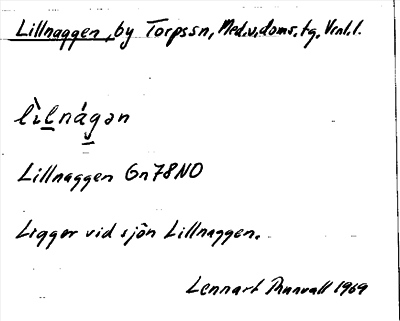 Lillnaggen, by Torpssn, Med.v.doms.tg. Vrnl.l.
lìlnágən
Lillnaggen Gn78NO
Ligger vid sjön Lillnaggen.
Lennart Thunvall 1969